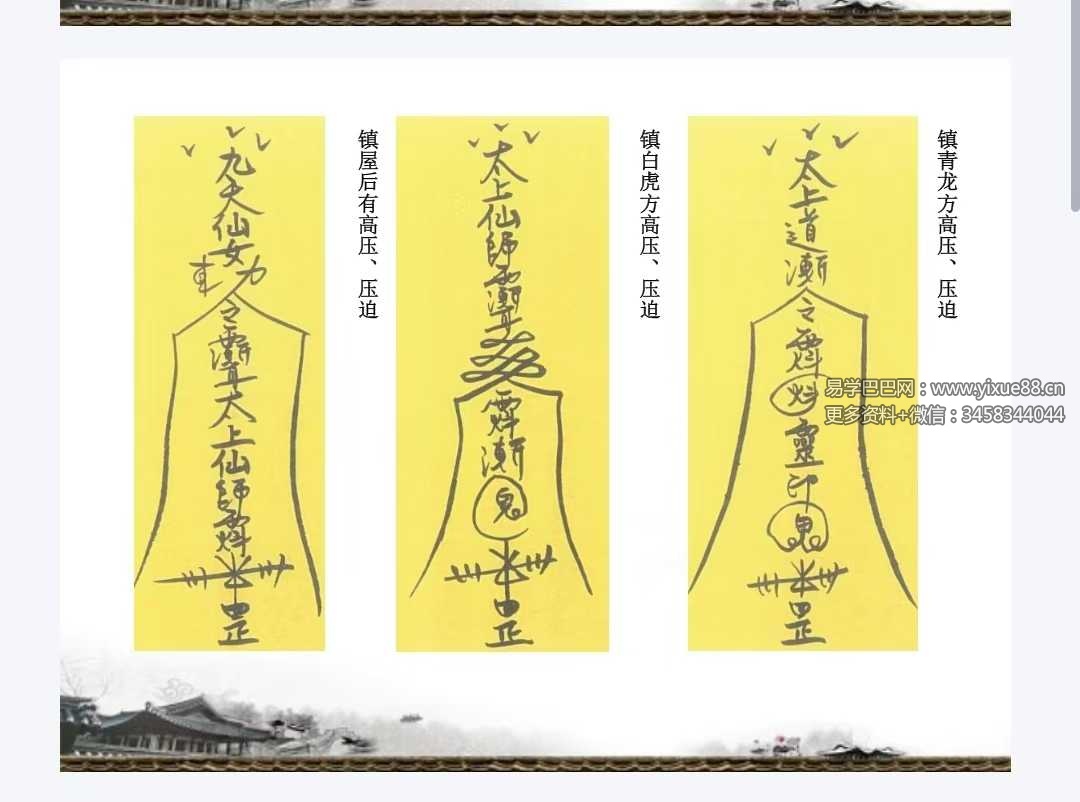 镇青龙方高压、压迫
太上道
令
靈
印
鬼
罡
镇白虎方高压、压迫
太上仙師
鬼
罡
镇屋后有高压、压迫
九天仙女
令
太上仙師
罡
易学巴巴网：www.yixue88.cn
更多资料+微信：3458344044